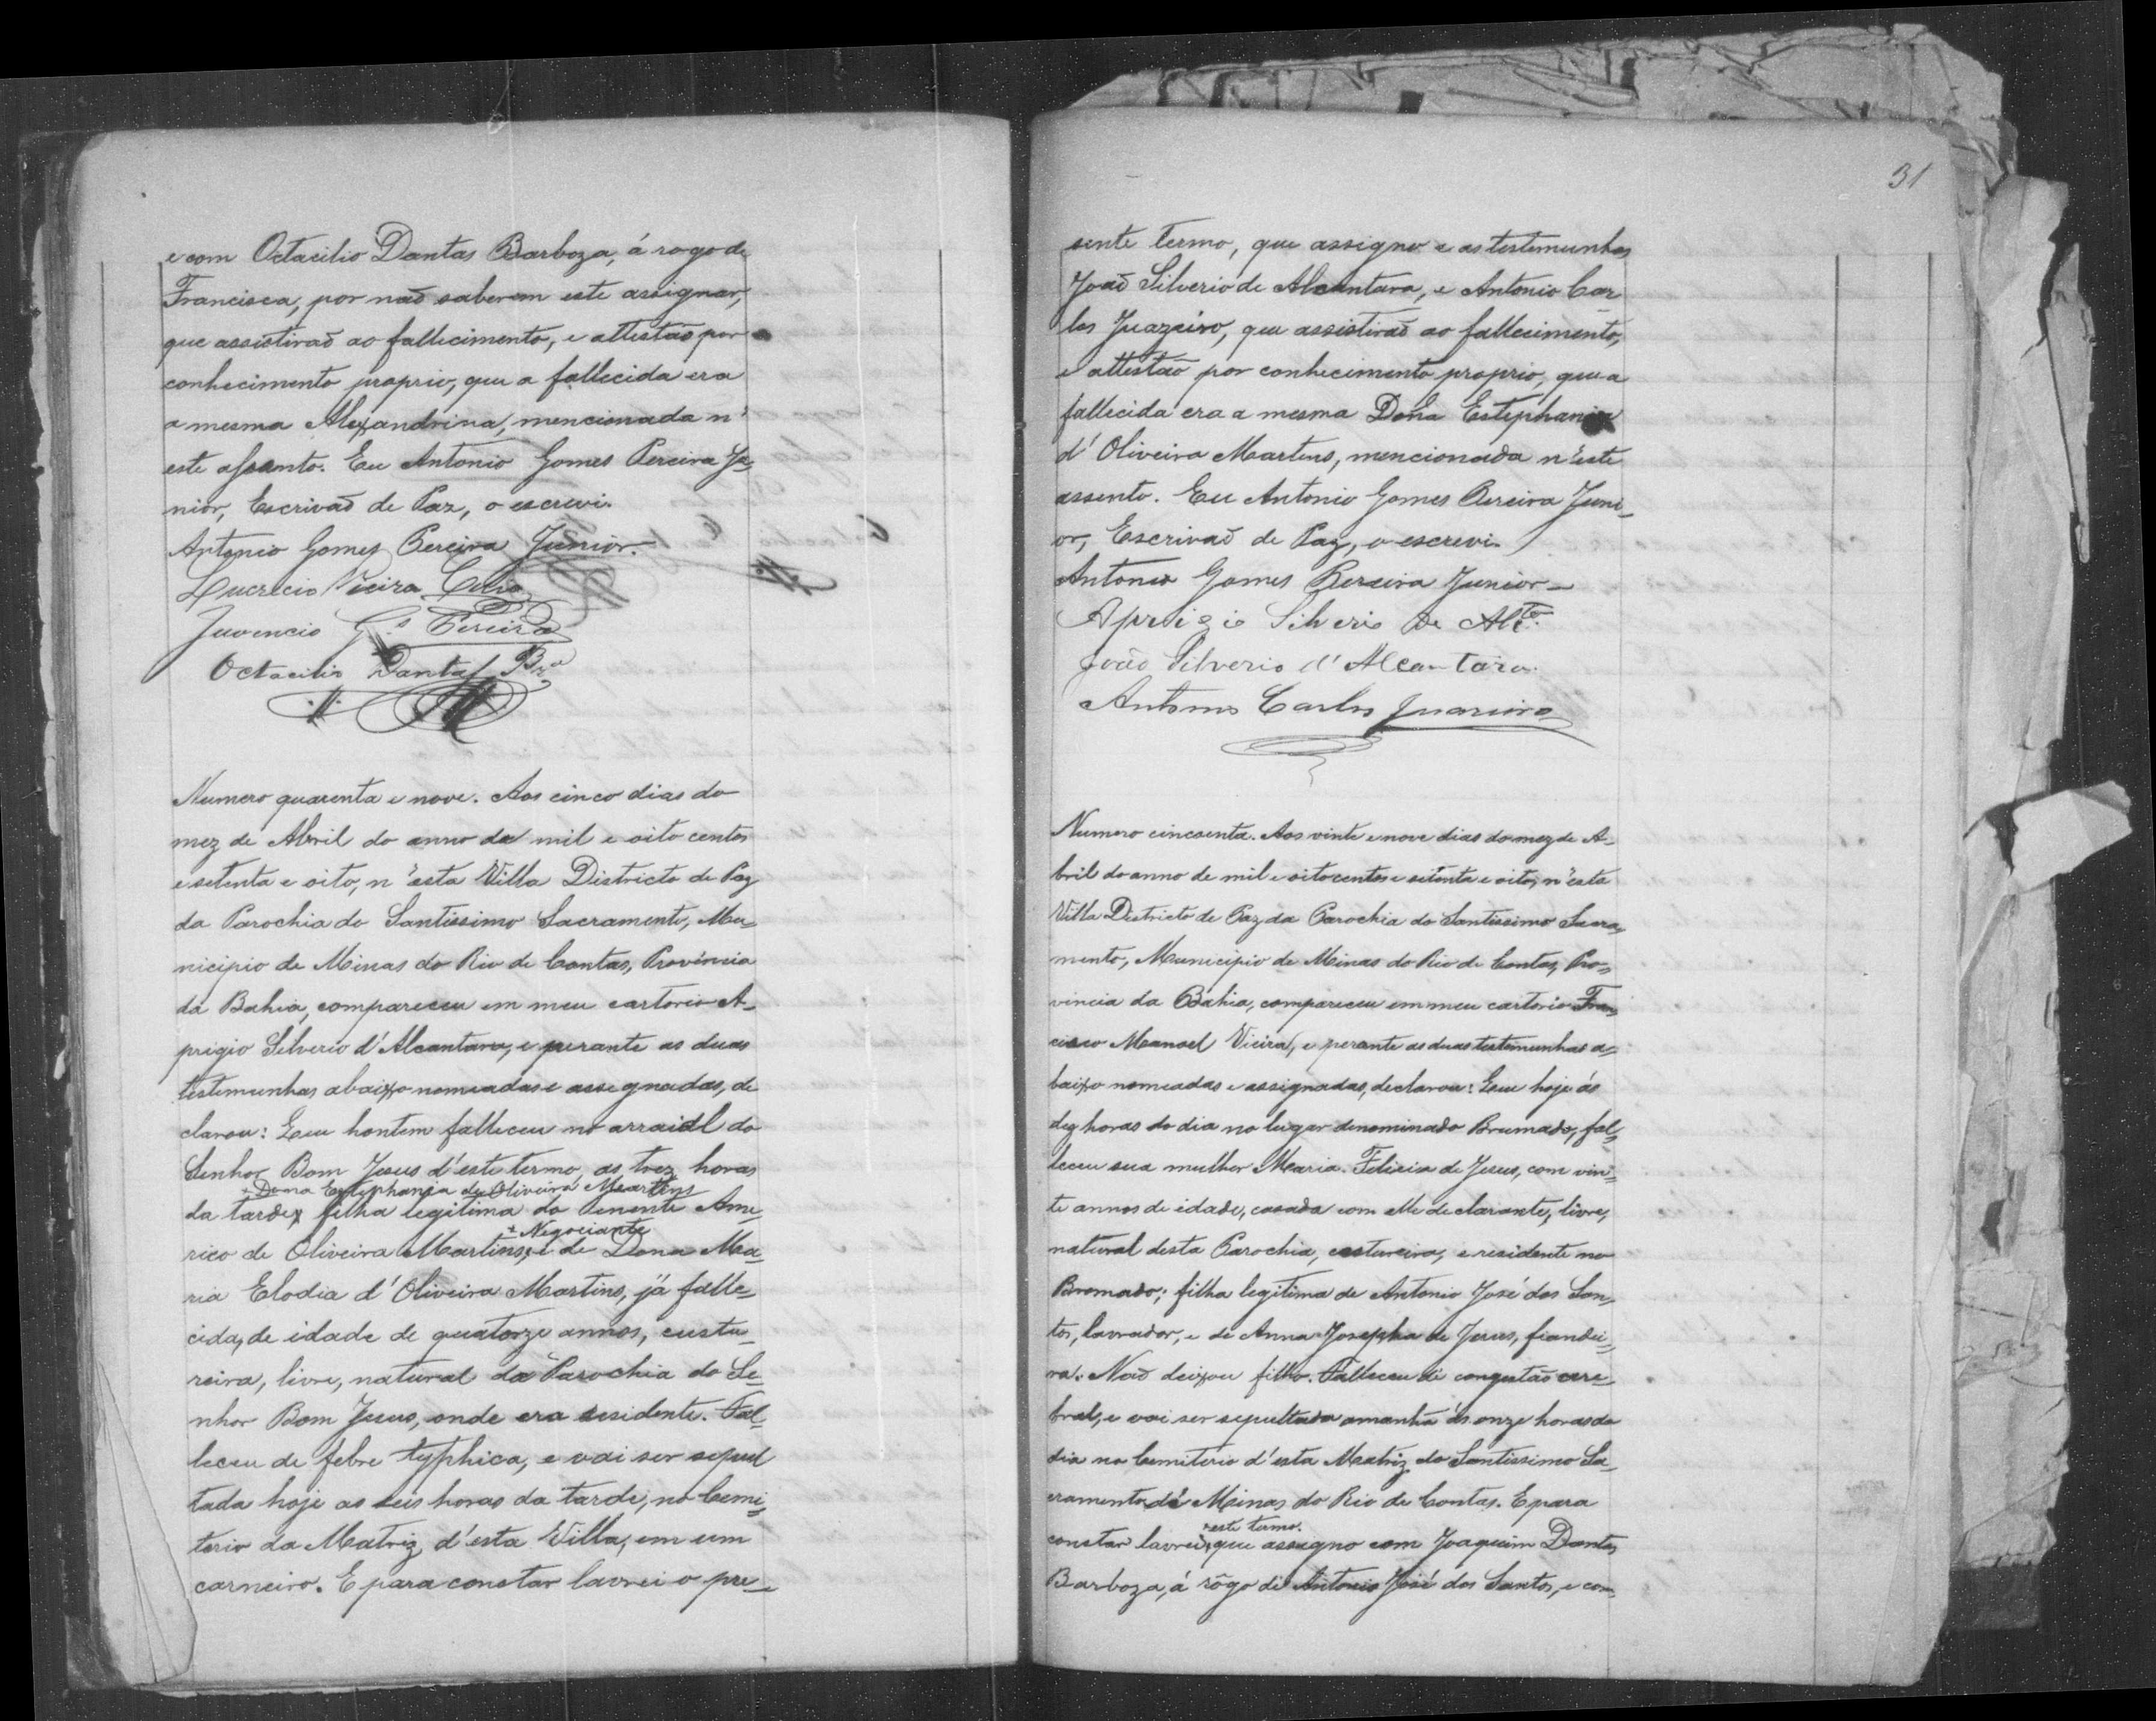 e com Octacilio Dantas Barboza, á rogo de
Francisca, por naõ saberem este assignar,
que assistiraõ ao fallecimento, e attestaõ por
conhecimento proprio, que a fallecida era
a mesma Alexandrina, mencionada n'
este assento. Eu Antonio Gomes Pereira Ju-
nior, Escrivaõ de Paz, o escrevi.
Antonio Gomes Pereira Junior.
Lucrecio Vieira
Juvencio Gs. Pereira
Octacilio Dantas Bza
Numero quarenta e nove. Aos cinco dias do
mez de Abril do anno de mil e oito centos
e setenta e oito, n'esta Villa Districto de Paz
da Parochia do Santissimo Sacramento, Mu-
nicipio de Minas do Rio de Contas, Provincia
da Bahia, compareceu em meu cartorio A-
prigio Silverio d'Alcantara, e perante as duas
testemunhas abaixo nomeadas e assegnadas, de
clarou: Que hontem falleceu no arraial do
Senhor Bom Jesus d'este termo, as trez horas
+ Dona Estephania de Oliveira Martins
da tarde + filha legitima do Tenente Ame-
+ Negociante
rico de Oliveira Martins, + e de Dona Ma-
ria Elodia d'Oliveira Martins, já falle-
cida, de idade de quatorze annos, custu-
reira, livre, natural da Parochia do Se-
nhor Bom Jesus, onde era residente. Fal-
leceu de febre typhica, e vai ser sepul
tada hoje as seis horas da tarde, no Cemi-
terio da Matriz d'esta Villa, em um
carneiro. E para constar lavrei o pre-
31
sente termo, que assigno e as testemunhas
Joaõ Silverio de Alcantara, e Antonio Car
los Juazeiro, que assistiraõ ao fallecimento,
e attestaõ por conhecimento proprio, que a
fallecida era a mesma Dona Estephania
d'Oliveira Martins, mencionada n'este
assento. Eu Antonio Gomes Pereira Juni-
or, Escrivaõ de Paz, o escrevi
Antonio Gomes Pereira Junior
Aprigio Silverio de Alc.ta
João Silverio d'Alcantara.
Antonio Carlos Juazeiro
Numero cincoenta. Aos vinte e nove dias do mez de A-
bril do anno de mil e oitocentos e setenta e oito, n'esta
Villa Districto de Paz da Parochia do Santissimo Sacra-
mento, Municipio de Minas do Rio de Contas, Pro-
vincia da Bahia, compareceu em meu cartorio Fran-
cisco Manoel Vieira, e perante as duas testemunhas a-
baixo nomeadas e assignadas, declarou: Que hoje ás
dez horas do dia no lugar denominado Brumado, fal-
leceu sua mulher Maria Felicia de Jesus, com vin-
te annos de idade, casada com elle declarante, livre,
natural desta Parochia, custureira, e residente no
Bromado; filha legitima de Antonio José dos San-
tos, lavrador, e de Anna Josepha de Jesus, fiandei-
ra. Naõ deixou filho. Falleceu de congestaõ cere-
bral, e vai ser sepultada amanhã ás onze horas do
dia no Cemiterio d'esta Matriz do Santissimo Sa-
cramento de Minas do Rio de Contas. E para
+ este termo.
constar lavrei + que assigno com Joaquim Dantas
Barboza, á rôgo de Antonio José dos Santos, e com